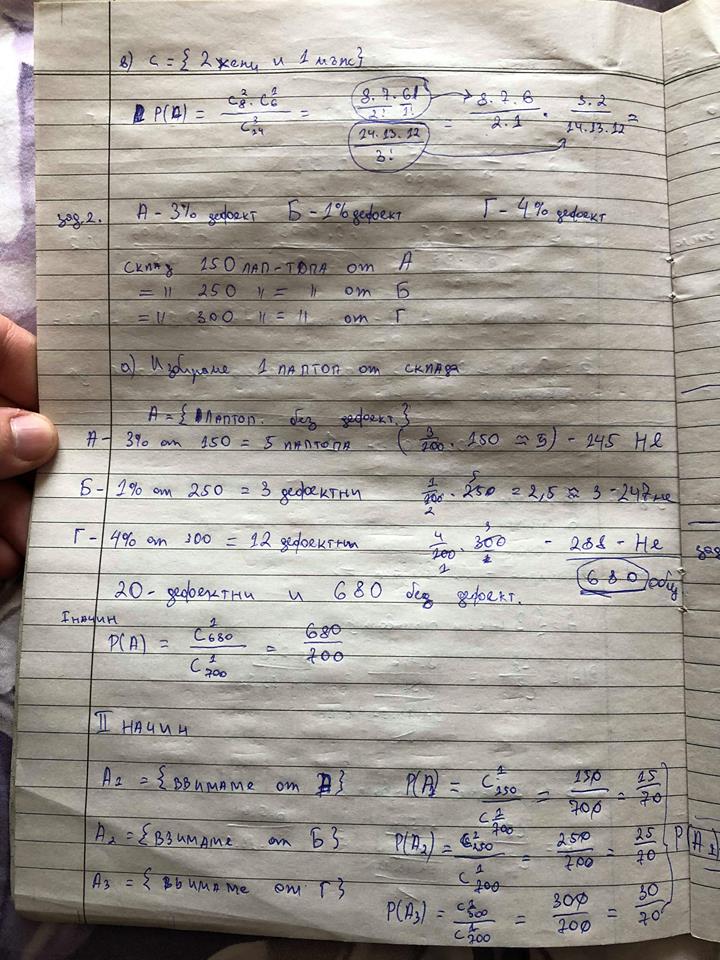 в) C = { 2 жени и 1 мъж }
P(A) = C²₈ · C¹₆ / C³₁₄ = (8.7.6! / 2! 1!) / (14.13.12 / 3!) = 8.7.6 / 2.1 · 3.2 / 14.13.12 =
зад.2. А - 3% дефект Б - 1% дефект Г - 4% дефект
склад 150 лап-топа от А
= " 250 " = " от Б
= " 300 " = " от Г
а) Избираме 1 лаптоп от склада
A = { 1 лаптоп. без дефект. }
А - 3% от 150 = 5 лаптопа ( 3/100 . 150 ≈ 5 ) - 145 не
Б - 1% от 250 = 3 дефектни 1/100 . 250 = 2,5 ≈ 3 - 247 не
Г - 4% от 300 = 12 дефектни 4/100 . 300 - 288 - не
680 общ
20 - дефектни и 680 без дефект.
I начин
P(A) = C¹₆₈₀ / C¹₇₀₀ = 680 / 700
II начин
A₁ = { взимаме от А } P(A₁) = C¹₁₅₀ / C¹₇₀₀ = 150 / 700 = 15 / 70
A₂ = { взимаме от Б } P(A₂) = C¹₂₅₀ / C¹₇₀₀ = 250 / 700 = 25 / 70 P(A₁)
A₃ = { взимаме от Г } P(A₃) = C¹₃₀₀ / C¹₇₀₀ = 300 / 700 = 30 / 70
зад